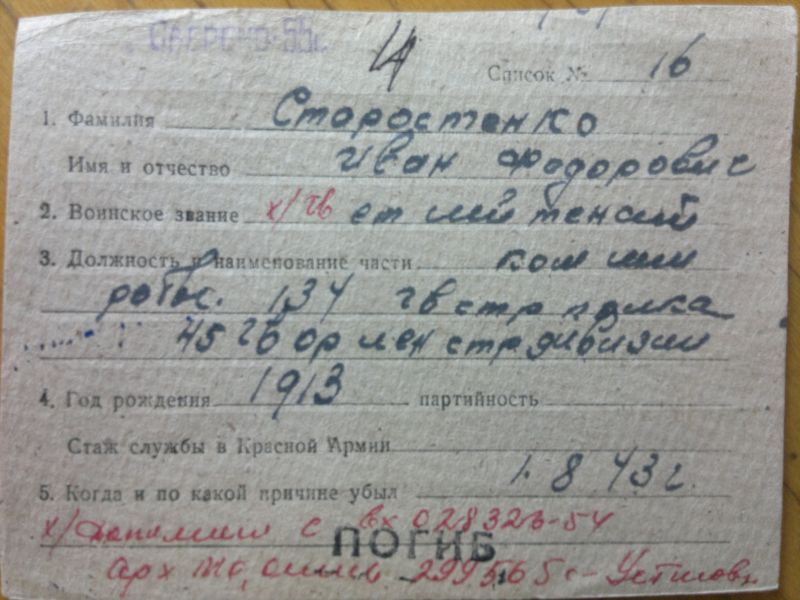 СВЕРЕНО-55г.
Список № 16
1. Фамилия Старостенко
Имя и отчество Иван Федорович
2. Воинское звание х/гв ст лейтенант
3. Должность и наименование части ком мин
роты. 134 гв стр полка
45 гв ор лен стр дивизии
4. Год рождения 1913 партийность
Стаж службы в Красной Армии
5. Когда и по какой причине убыл 1. 8 43 г.
х/ с вх 028326-54
ПОГИБ
арх МО,